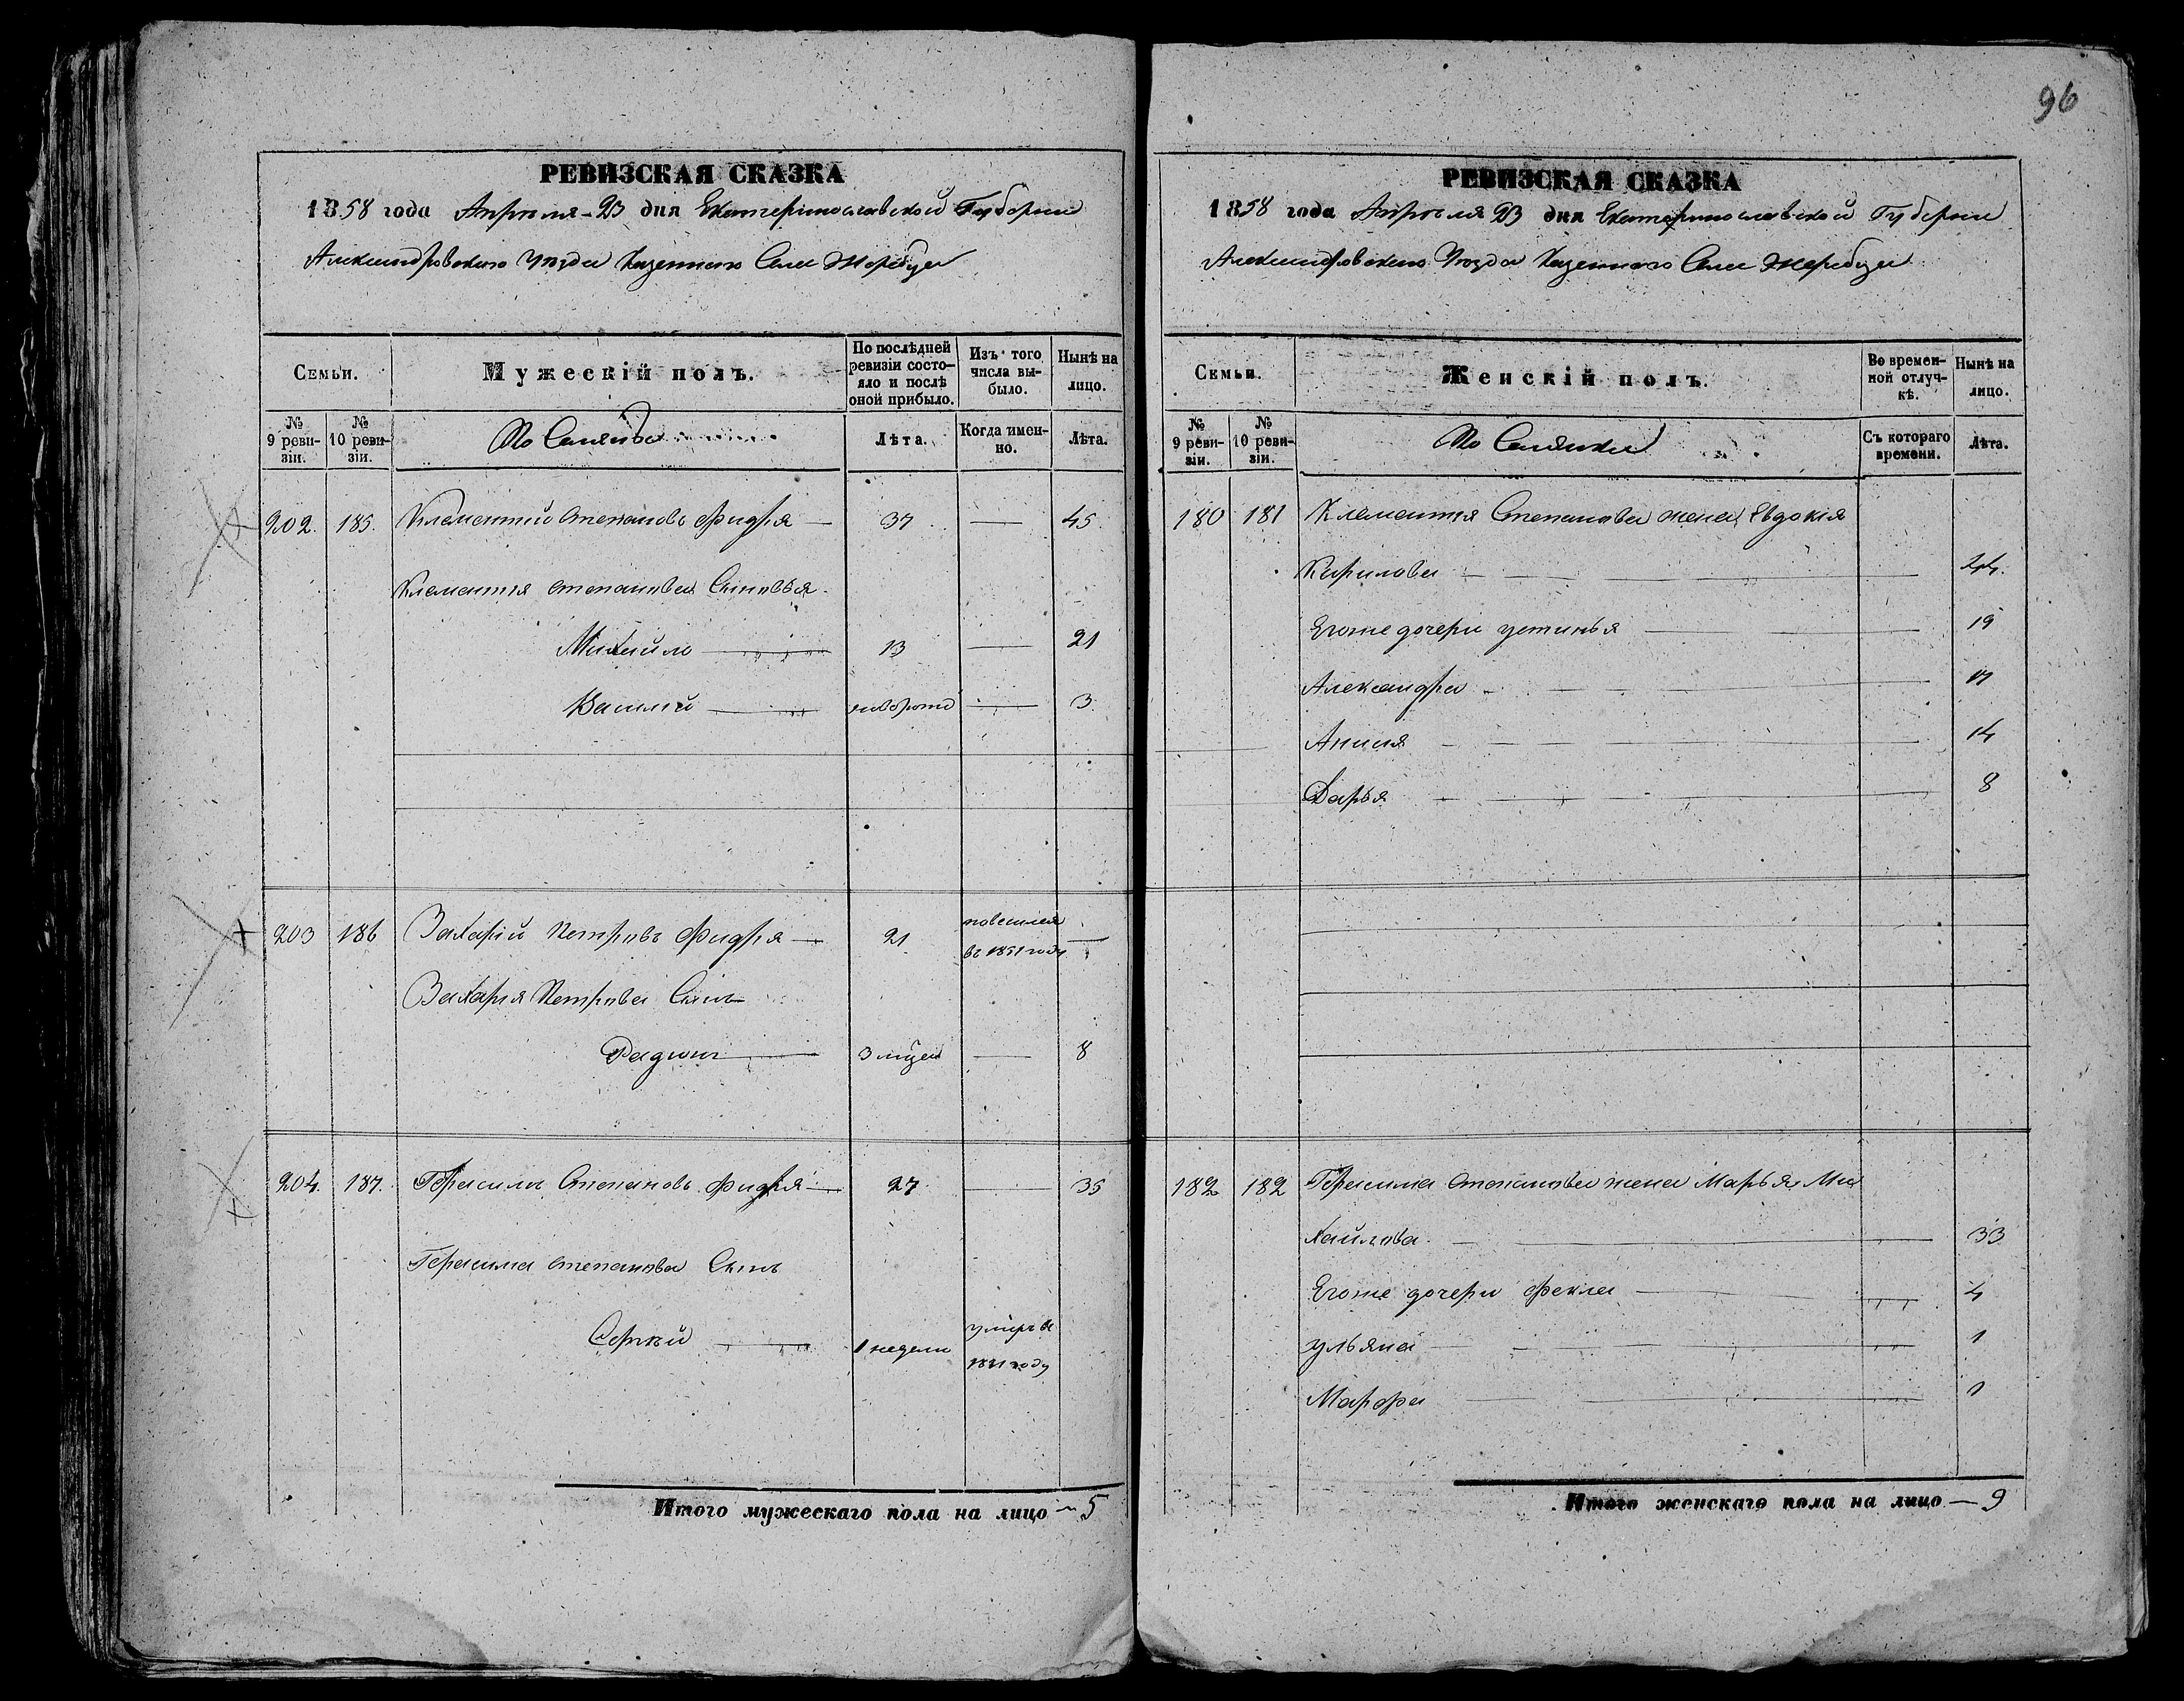 96
РЕВИЗСКАЯ СКАЗКА
1858 года Апрѣля 23 дня Екатеринославской Губернии
Александровского Уѣзда Казенного Села Жеребца
Семьи.
Мужескій полъ.
По послѣдней ревизіи состояло и послѣ оной прибыло.
Изъ того числа выбыло.
Нынѣ на лицо.
№ 9 ревизіи.
№ 10 ревизіи.
Лѣта.
Когда именно.
Лѣта.
202. 185. Клементий Степановъ Фидря — 37 — 45.
Клементия Степанова Сыновья
Михайло — 13 — 21
Василий — новорожд — 3.
203 186 Захарий Петровъ Фидря — 21 повесился —
въ 1851 году
Захария Петрова Сынъ
Радионъ — 3 мѣцеи — 8
204. 187. Герасимъ Степановъ Фидря — 27 — 35
Герасима Степанова Сынъ
Сергѣй — 1 недели умеръ въ
1851 году
Итого мужескаго пола на лицо — 5
РЕВИЗСКАЯ СКАЗКА
1858 года Апрѣля 23 дня Екатеринославской Губернии
Александровского Уѣзда Казенного Села Жеребца
Семьи.
Женскій полъ.
Во временной отлучкѣ.
Нынѣ на лицо.
№ 9 ревизіи.
№ 10 ревизіи.
Съ котораго времени.
Лѣта.
180 181 Клементия Степанова жена Евдокия
Кирилова — 44.
Егоже дочери Устинья — 19
Александра — 17
Анисия — 14
Дарья — 8
182 182 Герасима Степанова жена Марья Ми
хайлова — 33
Егоже дочери Фекла — 4
Ульяна — 1
Марфа — 1
Итого женскаго пола на лицо — 9